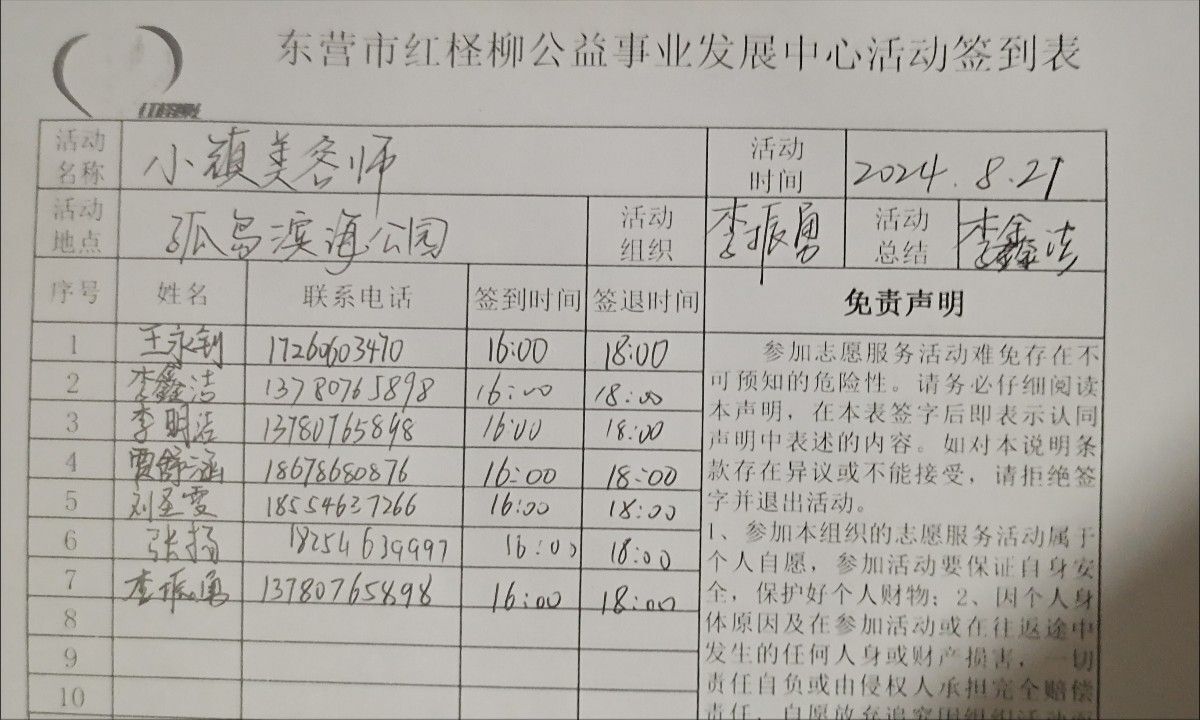 东营市红柽柳公益事业发展中心活动签到表
活动名称 小镇美容师 活动时间 2024.8.21
活动地点 孤岛滨海公园 活动组织 李振勇 活动总结 李鑫洁
序号 姓名 联系电话 签到时间 签退时间 免责声明
1 王永钊 17260603470 16:00 18:00
2 李鑫洁 13780765898 16:00 18:00
3 李明洁 13780765898 16:00 18:00
4 贾舒涵 18678680876 16:00 18:00
5 刘圣雯 18554637266 16:00 18:00
6 张扬 18254639997 16:00 18:00
7 李振勇 13780765898 16:00 18:00
8
9
10
参加志愿服务活动难免存在不
可预知的危险性。请务必仔细阅读
本声明，在本表签字后即表示认同
声明中表述的内容。如对本说明条
款存在异议或不能接受，请拒绝签
字并退出活动。
1、参加本组织的志愿服务活动属于
个人自愿，参加活动要保证自身安
全，保护好个人财物；2、因个人身
体原因及在参加活动或在往返途中
发生的任何人身或财产损害，一切
责任自负或由侵权人承担完全赔偿
责任，自愿放弃追究因组织活动而